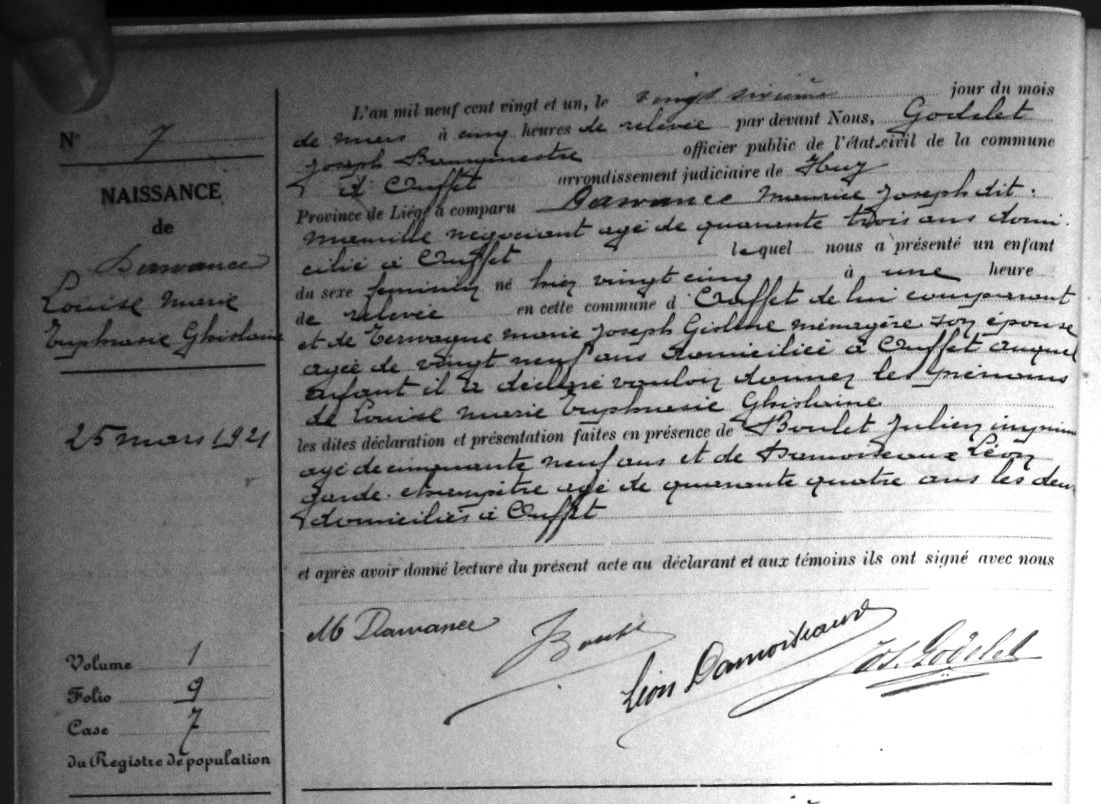 N° 7
NAISSANCE
de
Dawance
Louise Marie
Euphrasie Ghislaine
25 mars 1921
Volume 1
Folio 9
Case 7
du Registre de population
L'an mil neuf cent vingt et un, le vingt sixième jour du mois
de mars à cinq heures de relevée par devant Nous, Godelet
Joseph Bourgmestre officier public de l'état-civil de la commune
d'Ouffet arrondissement judiciaire de Huy
Province de Liége a comparu Dawance Maurice Joseph dit
négociant agé de quarante trois ans domi-
cilié à Ouffet lequel nous a présenté un enfant
du sexe féminin né hier vingt cinq à une heure
de relevée en cette commune d'Ouffet de lui comparant
et de Terwagne Marie Joseph Gislène ménagère son épouse
agée de vingt neuf ans domiciliée à Ouffet auquel
enfant il a déclaré vouloir donner les prénoms
de Louise Marie Euphrasie Ghislaine
les dites déclaration et présentation faites en présence de Boulet Julien
agé de cinquante neuf ans et de Damoiseaux Léon
garde-champêtre agé de quarante quatre ans les deux
domiciliés à Ouffet
et après avoir donné lecture du présent acte au déclarant et aux témoins ils ont signé avec nous
M Dawance
Boulet
Léon Damoiseaux
Jos. Godelet